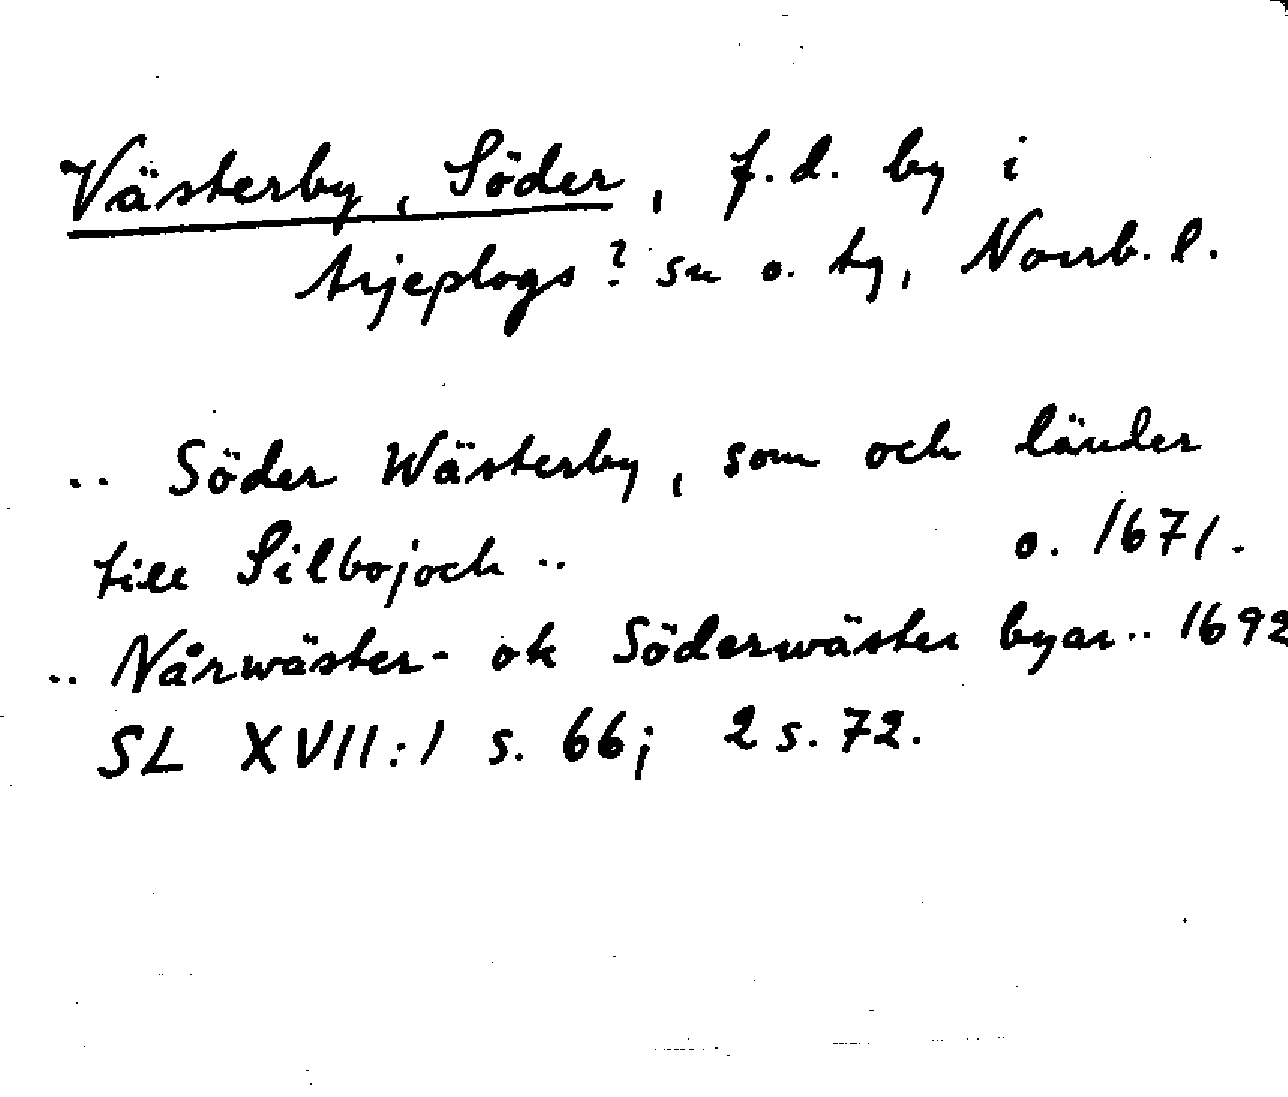 Västerby, Söder, f.d. by i
Arjeplogs? sn o. tg, Norrb. l.
.. Söder Wästerby, som och länder
till Silbojoch ..  o. 1671.
.. Nårwäster- ok Söderwäster byar .. 1692
SL XVII:1 s. 66; 2 s. 72.